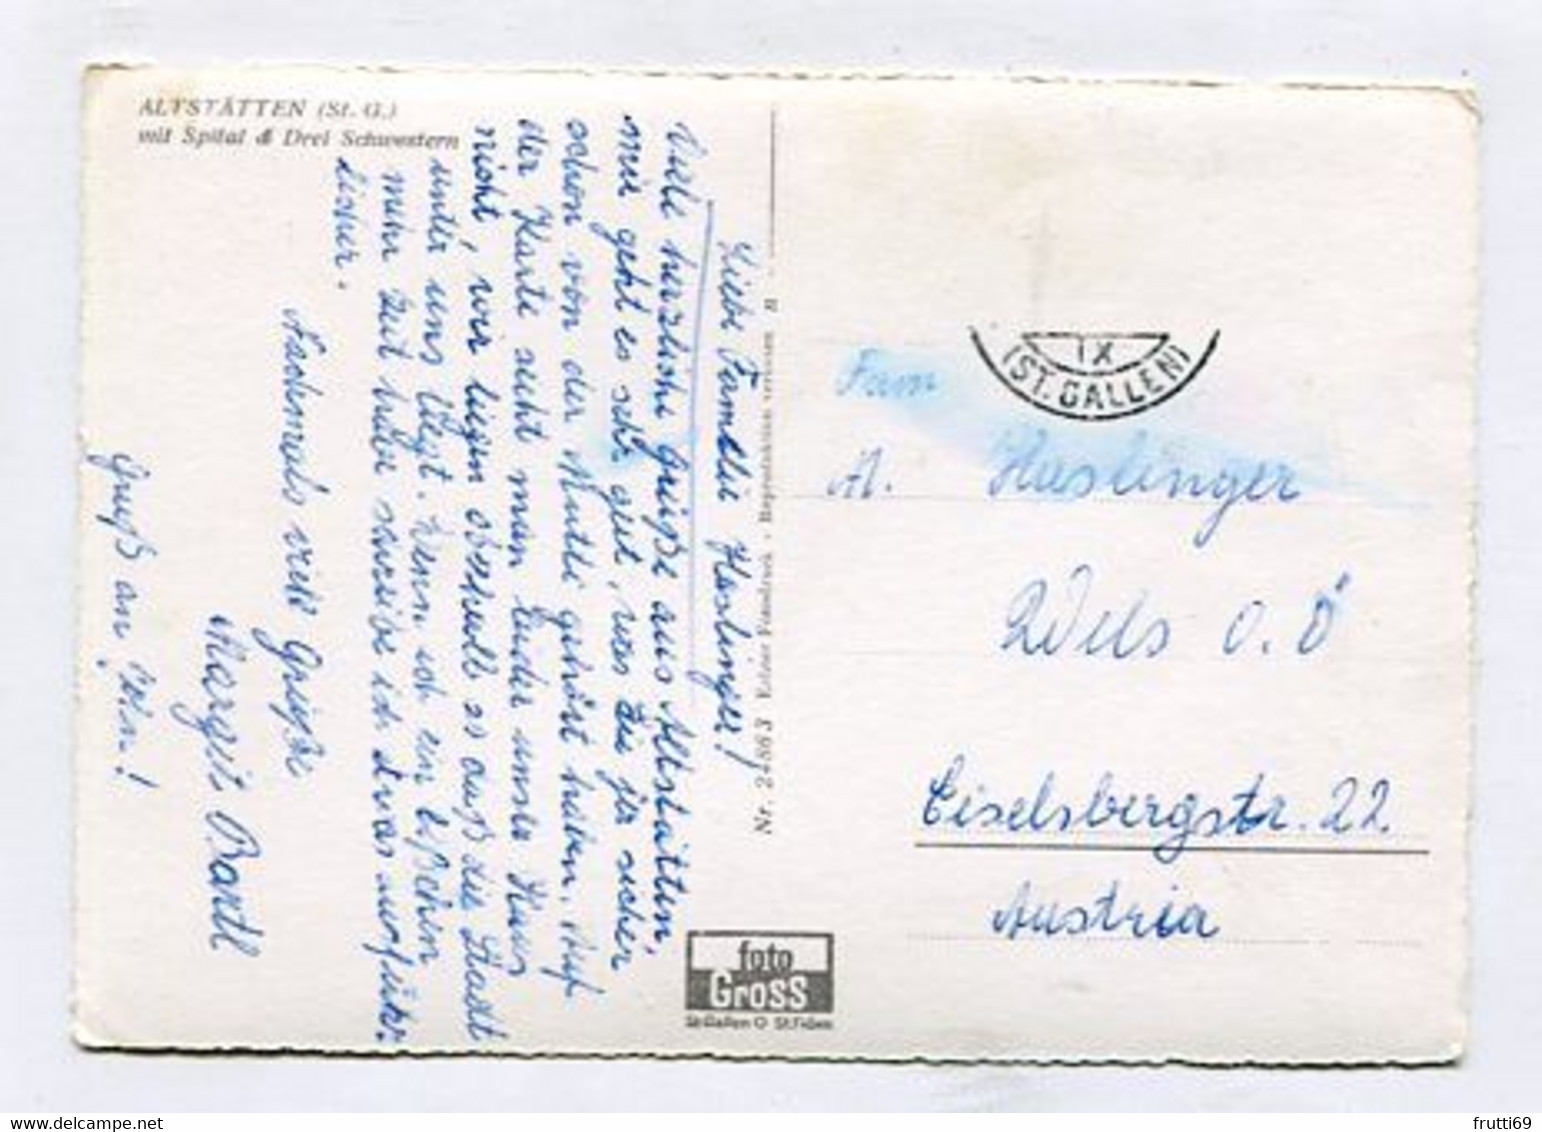 ALTSTÄTTEN (St. G.)
mit Spital & Drei Schwestern
Liebe Familie Haslinger!
Viele herzliche Grüße aus Altstätten,
mir geht es sehr gut, was Sie ja sicher
schon von der Mutti gehört haben. Auf
der Karte sieht man leider unser Haus
nicht, wir liegen oberhalb so auß die Stadt
unter uns liegt. Wenn ich ein bißchen
mehr Zeit habe schreibe ich etwas ausführ-
licher.
Nochmals viele Grüße
Margit Bartl
Gruß an !
Nr. 24863 Reproduktion verboten
foto
Gross
St.Gallen O St.Fiden
IX
(ST. GALLEN)
Fam
A. Haslinger
Wels O.Ö
Eiselsbergstr. 22.
Austria
frutti69